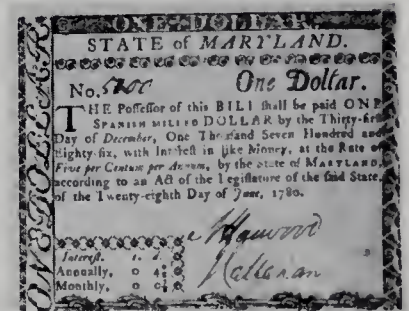 ONE DOLLAR
STATE of MARYLAND.
No. 5200 One Dollar.
THE Poſſeſſor of this BILL ſhall be paid ONE
SPANISH MILLED DOLLAR by the Thirty-firſt
Day of December, One Thouſand Seven Hundred and
Eighty-ſix, with Intereſt in like Money, at the Rate of
Five per Centum per Annum, by the State of MARYLAND,
according to an Act of the Legiſlature of the ſaid State,
of the Twenty-eighth Day of June, 1780.
Intereſt. s. d.
Annually, 0
Monthly, 0
ONE DOLLAR